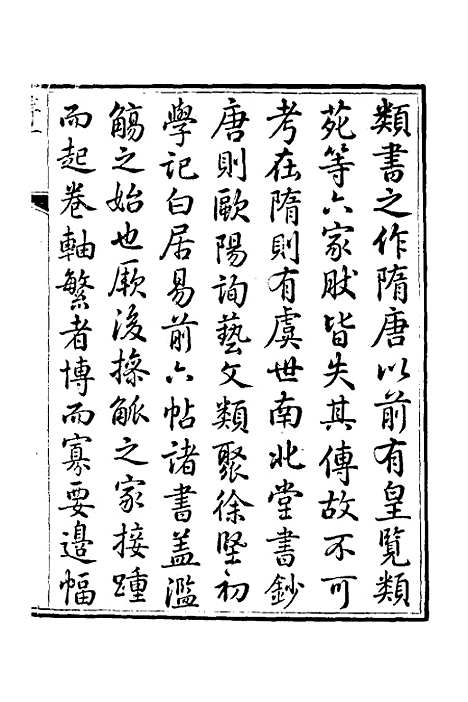 類書之作隋唐以前有皇覽類
苑等六家肰皆失其傳故不可
考在隋則有虞世南北堂書鈔
唐則歐陽詢藝文類聚徐堅初
學記白居易前六帖諸書盖濫
觴之始也厥後操觚之家接踵
而起卷軸繁者博而寡要邉幅